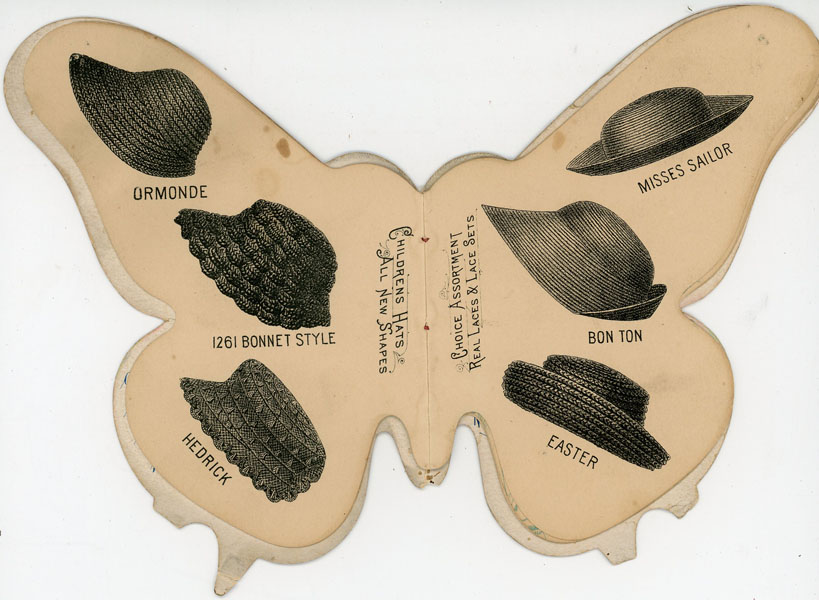 ORMONDE
1261 BONNET STYLE
HEDRICK
CHILDRENS HATS
ALL NEW SHAPES
CHOICE ASSORTMENT
REAL LACES & LACE SETS
MISSES SAILOR
BON TON
EASTER